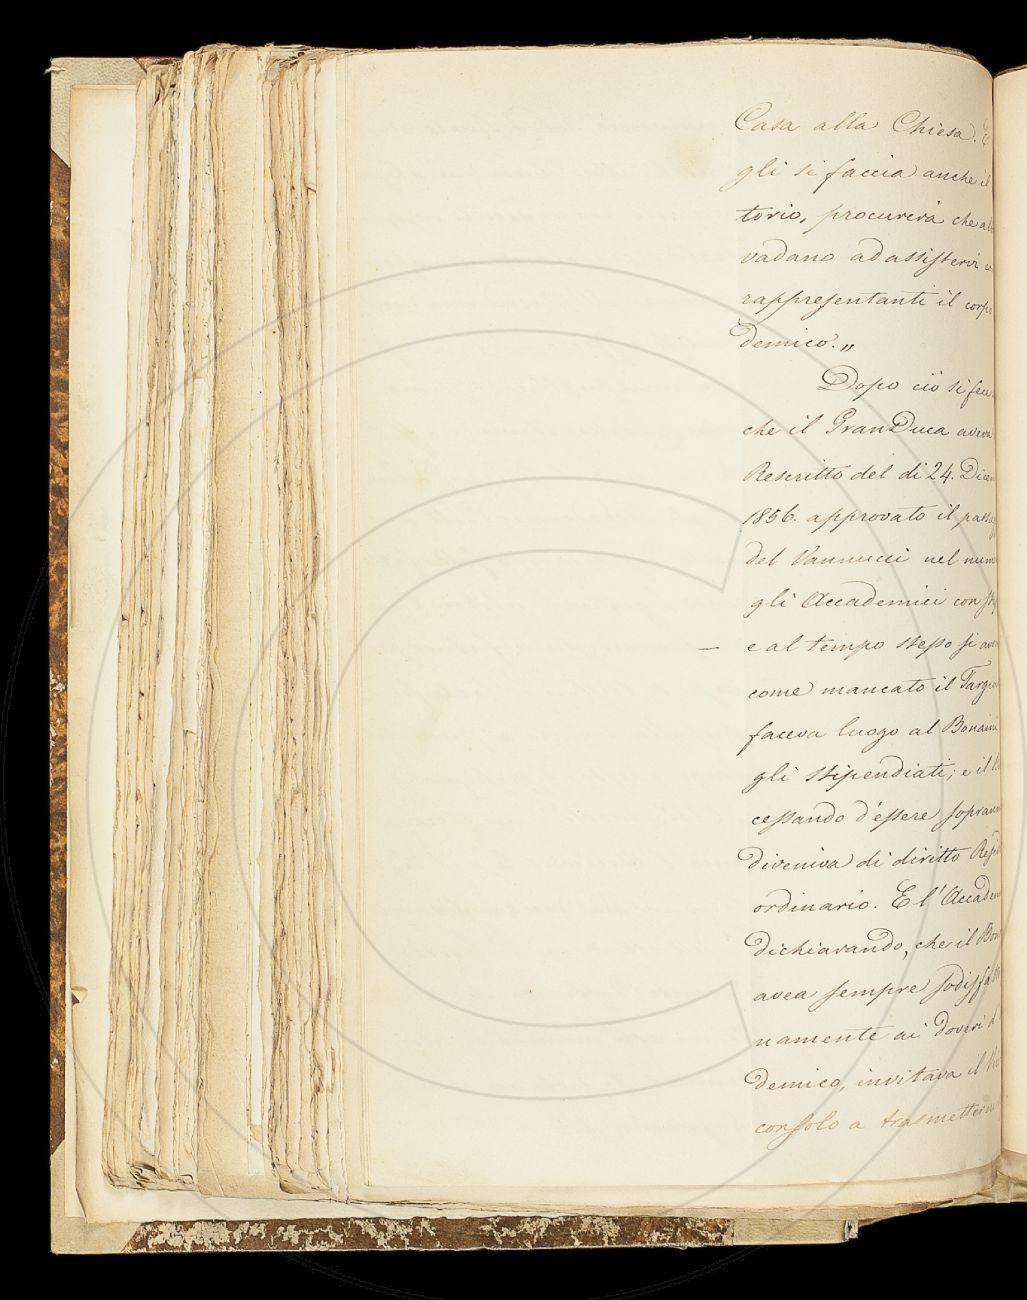 Casa alla Chiesa. E
gli si faccia anche il
torio, procurerà che al
vadano ad assistervi
rappresentanti il corpo
demico. „
Dopo ciò si fece
che il GranDuca aveva
Rescritto del dì 24. Dicem
1856. approvato il passag
del Vannucci nel nume
gli Accademici con
e al tempo stesso si
come mancato il Targio
faceva luogo al Bonaini
gli stipendiati; e il
cessando d'essere sopran
diveniva di diritto Resid
ordinario. E l'Accadem
dichiarando, che il Bon
avea sempre sodisfatto
namente ai doveri d
demico, invitava il
consolo a trasmetter